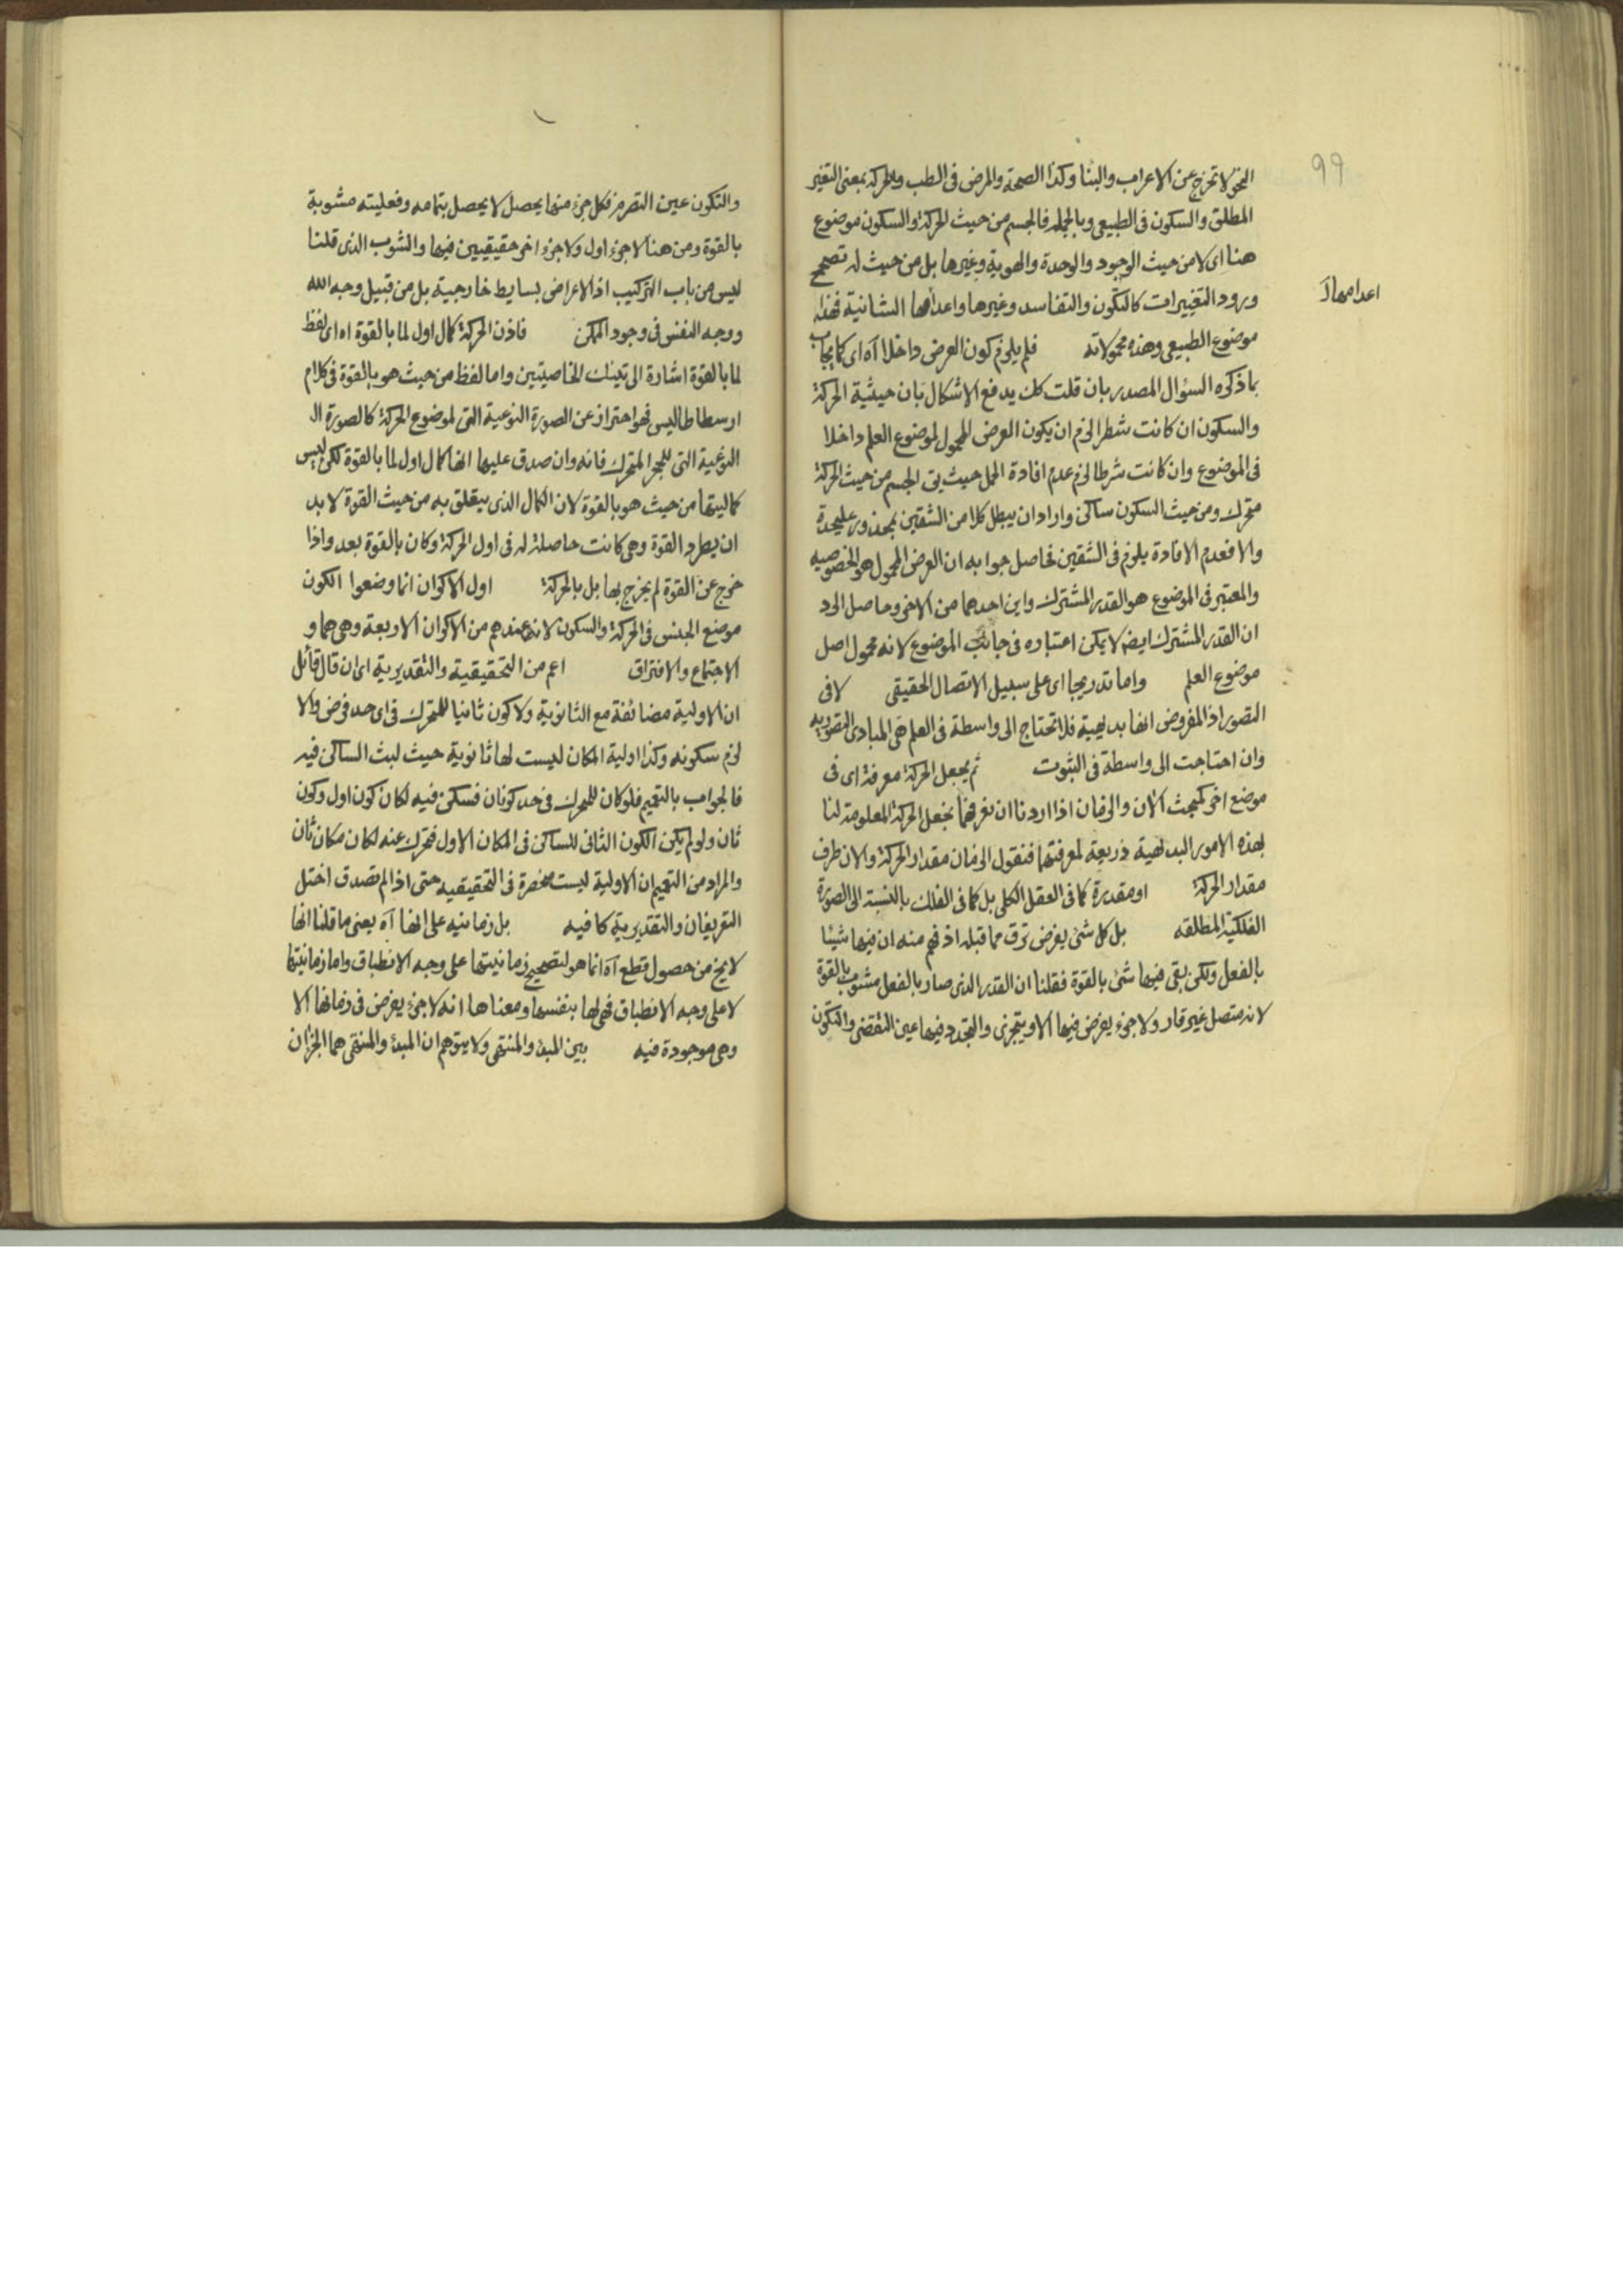 99
النحو لا تخرج عن الاعراب والبنا وكذا الصحة والمرض فى الطب والحركة بمعنى التغير
المطلق والسكون فى الطبيعى وبالجمله فالجسم من حيث الحركة والسكون موضوع
هنا اى لا من حيث الوجود والوحدة والهوية وغيرها بل من حيث له تصحح
ورود التغييرات كالتكون والتفاسد وغيرها واعدامها الشانية فهذا
اعدامها لآ
موضوع الطبيعى وهذه محمولاته فلم يلزم كون العرض داخلا آه اى كما يجاب
بما ذكره السؤال المصدر بان قلت كك يدفع الاشكال بان حيثية الحركة
والسكون ان كانت شطرا لزم ان يكون العرض المحمول لموضوع العلم داخلا
فى الموضوع وان كانت شرطا لزم عدم افادة الحمل حيث يق الجسم من حيث الحركة
متحرك ومن حيث السكون ساكن واراد ان يبطل كلا من الشقين بمحذور عليحدة
والا فعدم الافادة يلزم فى الشقين فحاصل جوابه ان العرض المحمول هو الخصوصيه
والمعتبر فى الموضوع هو القدر المشترك واين احدهما من الاخر وحاصل الرد
ان القدر المشترك ايضا لا يمكن اعتباره فى جانب الموضوع لانه محمول اصل
موضوع العلم واما تدريجا اى على سبيل الاتصال الحقيقى لا فى
التصور اذ المفروض انها بديهية فلا تحتاج الى واسطة فى العلم هى المبادى التصوريه
وان احتاجت الى واسطة فى الثبوت ثم يجعل الحركة معرفة اى فى
موضع اخر كمبحث الآن والزمان اذا اردنا ان نعرفهما نجعل الحركة المعلومة لنا
بهذه الامور البديهية ذريعة لمعرفتهما فنقول الزمان مقدار الحركة والان طرف
مقدار الحركة او مقدرة كما فى العقل الكلى بل كما فى الفلك بالنسبة الى الصورة
الفلكية المطلقه بل كل شئ يفرض ترق مما قبله اذ فهم منه ان فيها شيئا
بالفعل ولكن بقى فيها شئ بالقوة فقلنا ان القدر الذى صار بالفعل مشوب بالقوة
لانه متصل غير قار ولا جزء يفرض فيها الا ويتجزى والتجدد فيها عين التقضى والتكون
والتكون عين التصرم فكل جزء منها يحصل لا يحصل بتمامه وفعليته مشوبة
بالقوة ومن هنا لا جزء اول ولا جزء اخر حقيقيين فيها والشوب الذى قلنا
ليس من باب التركيب اذ الاعراض بسايط خارجية بل من قبيل وجه الله
ووجه النفس فى وجود الممكن فاذن الحركة كمال اول لما بالقوة اه اى لفظ
لما بالقوة اشارة الى تينك الخاصيتين واما لفظ من حيث هو بالقوة فى كلام
ارسطاطاليس فهو احتراز عن الصورة النوعية التى لموضوع الحركة كالصورة ال
النوعية التى للحجر المتحرك فانه وان صدق عليها انها كمال اول لما بالقوة لكن ليس
كماليتها من حيث هو بالقوة لان الكمال الذى يتعلق به من حيث القوة لا بد
ان يطرد القوة وهى كانت حاصلة له فى اول الحركة وكان بالقوة بعد واذا
خرج عن القوة لم يخرج بها بل بالحركة اول الاكوان انما وضعوا الكون
موضع الجنس فى الحركة والسكون لانه عندهم من الاكوان الاربعة وهى هما و
الاجتماع والافتراق اعم من التحقيقية والتقديرية اى ان قال قائل
ان الاولية مضائفة مع الثانوية ولا كون ثانيا للمتحرك فى اى حد فرض والا
لزم سكونه وكذا اولية المكان ليست لها ثانوية حيث لبث الساكن فيه
فالجواب بالتعميم فلو كان للمتحرك فى حد كونان فسكن فيه لكان كون اول وكون
ثان ولو لم يكن الكون الثانى للساكن فى المكان الاول فتحرك عنه لكان مكان ثان
والمراد من التعميم ان الاولية ليست منحصرة فى التحقيقيه حتى اذا لم تصدق اختل
التعريفان والتقديرية كافيه بل زمانيه على انها آه يعنى ما قلنا انها
لا يخ من حصول قطع آه انما هو لتصحيح زمانيتها على وجه الانطباق واما زمانيتها
لا على وجه الانطباق فهى لها بنفسها ومعناها انه لا جزء يفرض فى زمانها الا
وهى موجودة فيه بين المبدء والمنتهى ولا يتوهم ان المبدء والمنتهى هما الجزان